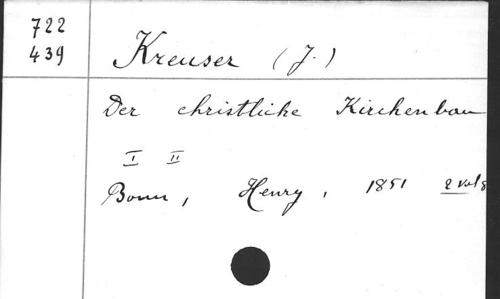 722
439
Kreuser (J.)
Der christliche Kirchenbau
I II
Bonn, Henry, 1851 2 vols